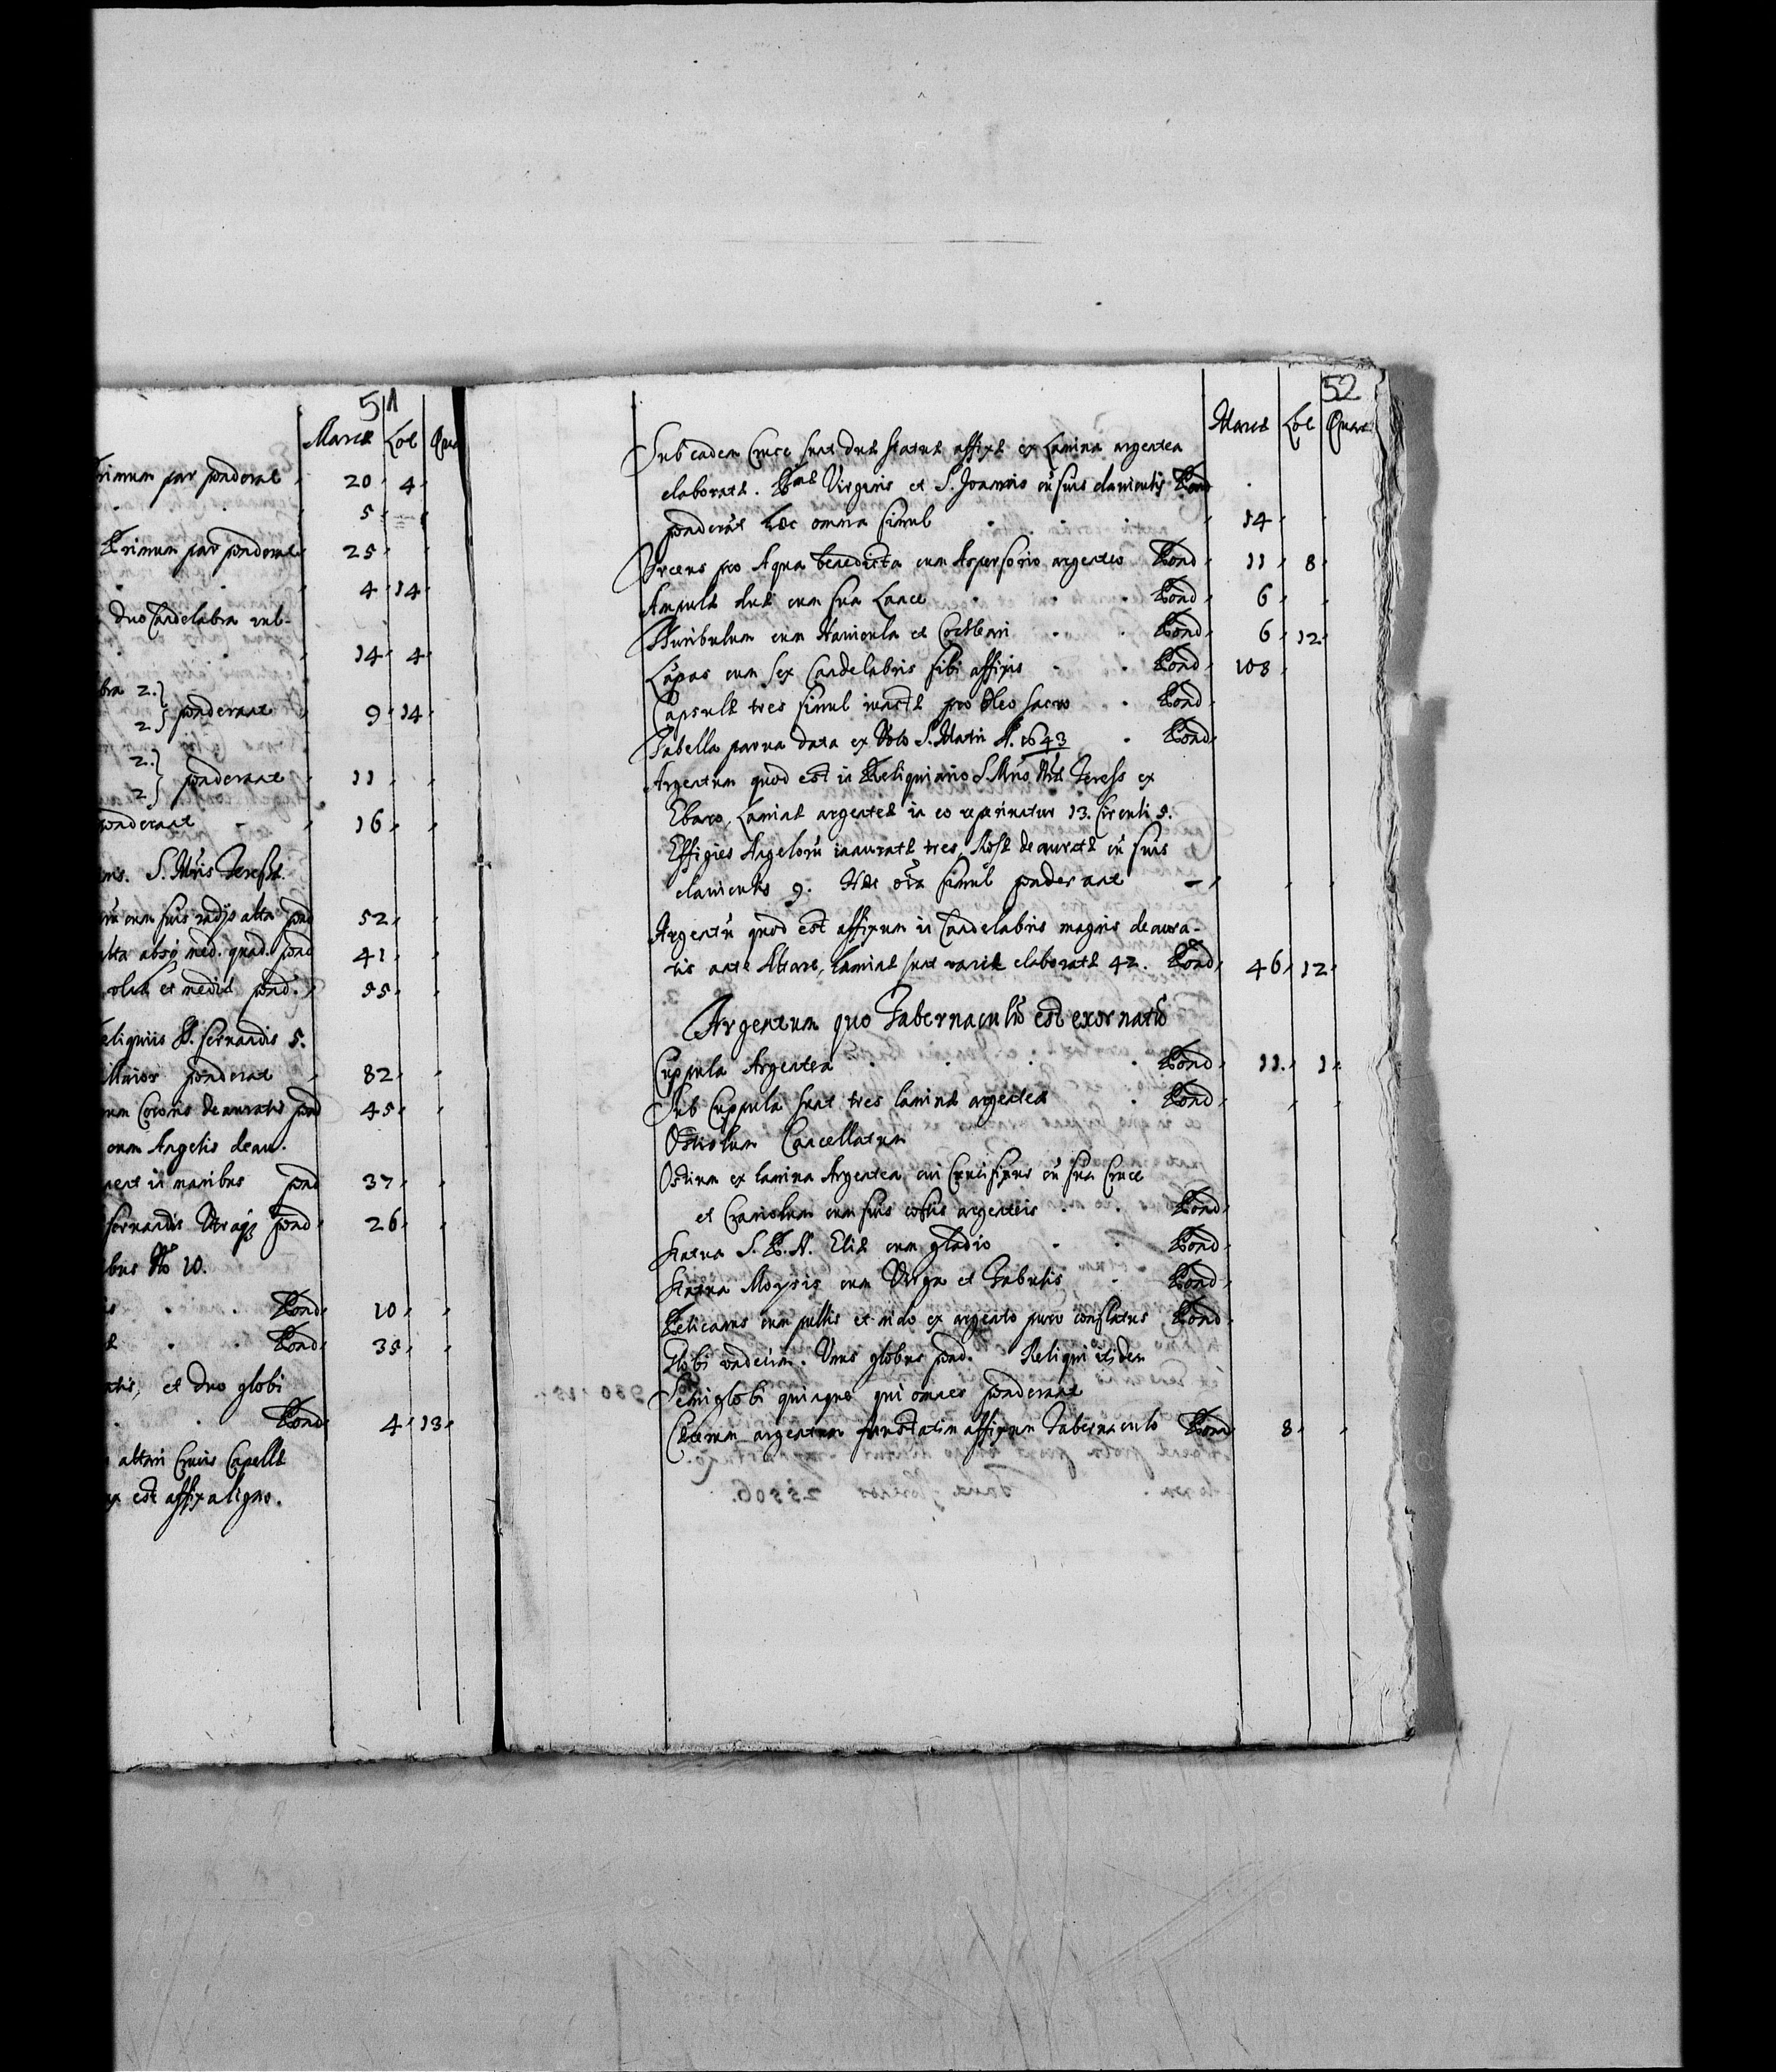 51
Marcæ Lot Qua
rimum par ponderat 20 4
5
Primum par ponderat 25
4 14
duo Candelabra vul-
14 4
bra 2.
2. ponderant 9 14
2.
2 ponderant 11
onderant 16
S. Mris Teresæ.
cum suis radijs alta pond 52
alta absq med. quad. pond 41
et mediæ pond. 55
eliquiis S. fernandis 5.
Maior ponderat 82
um Coronis deauratis pond 45
cum Angelis deau.
in manibus pond 37
fernandis Utraq pond 26
bus No 10.
Pond 10
Pond 35
atis, et duo globi
Pond 4 13
altari Crucis Capellæ
est affixa ligno.
52
Marcæ Lot Quart
Sub eadem Cruce sunt duæ statuæ affixæ ex Lamina argentea
elaboratæ. Bmæ Virginis et S. Joannis cũ suis claviculis Pond
ponderãt hæc omnia simul 14
Urceus pro Aqua benedicta cum Aspersorio argenteo Pond 11 8
Ampulæ duæ cum sua Lance Pond 6
Thuribulum cum Navicula et Cochleari Pond 6 12
Lãpas cum sex Candelabris sibi affixis Pond 108
Capsulæ tres simul iunctæ pro Oleo sacro Pond
Tabella parva data ex Voto S. Matri A. 1643 Pond
Argentum quod est in Reliquiario S. Mris Nræ Teress ex
Ebano, Laminæ argenteæ in eo reperiuntur 13. Circuli 5.
Effigies Angelorũ inauratæ tres, Rosæ deauratæ cũ suis
claviculis 9. Hæc oia simul ponderant
Argentũ quod est affixum in Candelabris magnis deaura-
tis ante Altare, Laminæ sunt variæ elaboratæ 42. Pond 46 12
Argentum quo Tabernaculũ est exornatũ
Cuppula Argentea Pond 11. 1
Sub Cuppula sunt tres laminæ argenteæ Pond
Ostiolum Cancellatum
Ostium ex lamina Argentea cui Crucifixus cũ sua Cruce
et Craniolum cum suis costis argenteis Pond
Statua S. P. N. Eliæ cum gladio Pond
Statua Moysis cum Virga et Tabulis Pond
Pelicanus cum pullis et nido ex argento puro conflatus Pond
Globi undecim. Unus globus pond. Reliqui itidem
Semiglobi quinque qui omnes ponderant
Cæterum argentum frustatim affixum Tabernaculo Pond 8